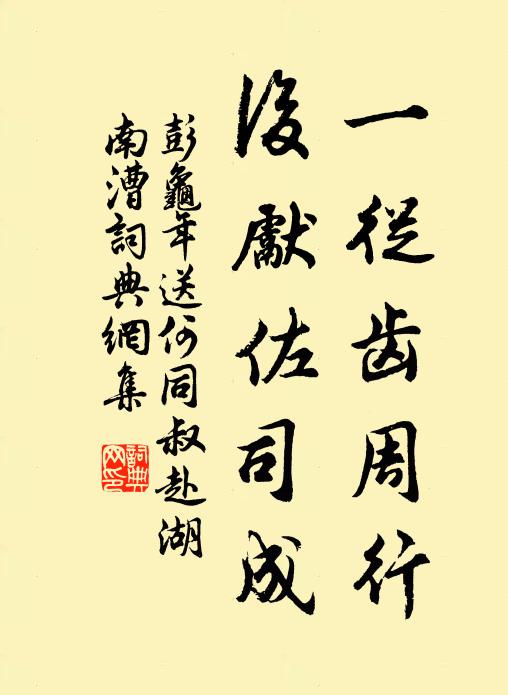 一從齿周行
後獻佐司成
彭龜年送何同叔赴湖
南漕詞典網集
詞典網印